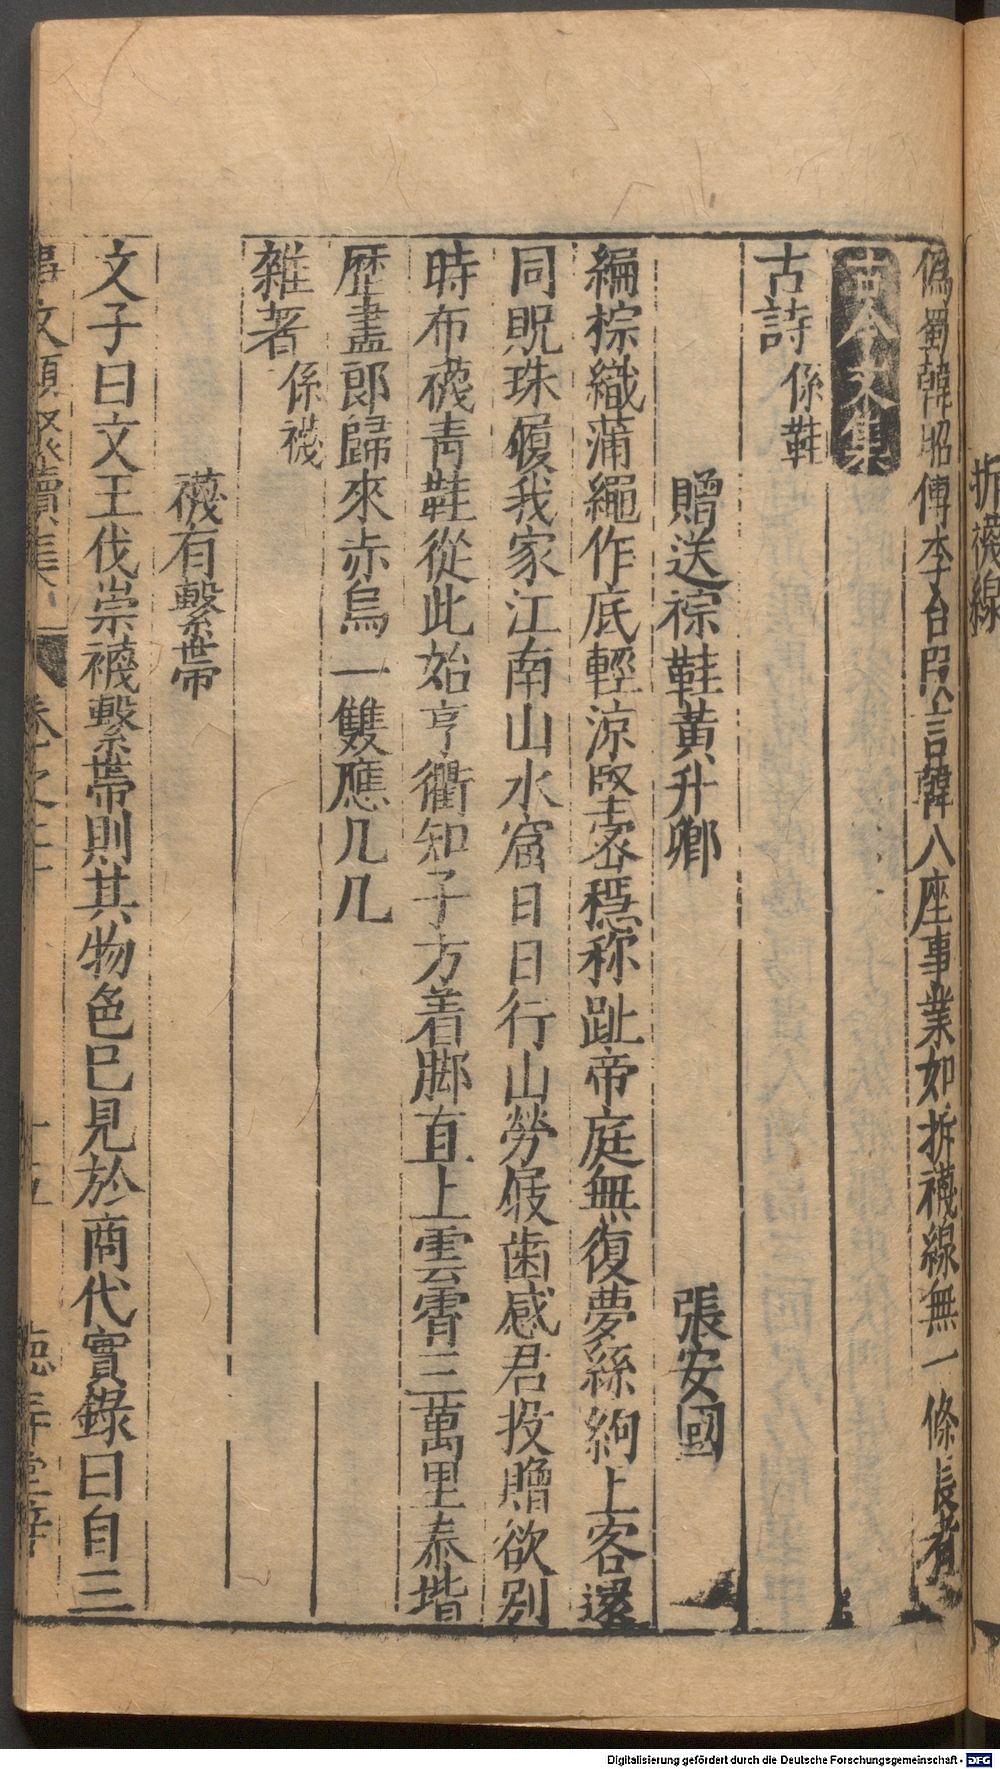 折襪線
偽蜀韓昭傅李台瑕言韓八座事業如拆襪線無一條長者
古今文集
古詩 係鞋
贈送椶鞋黃升卿 張安國
編棕織蒲繩作底輕涼堅密穩称趾帝庭無復夢絲絇上客還
同貺珠履我家江南山水窟日日行山勞屐齒感君投贈欲別
時布襪青鞋從此始亨衢知子方着脚直上雲霄三萬里泰堦
歷盡郎歸來赤舄一雙應几几
雜著 係襪
襪有繫帶
文子曰文王伐崇襪繫帶則其物色巳見於商代實錄曰自三
事文類聚續集 卷之二十 十五 德壽堂梓
Digitalisierung gefördert durch die Deutsche Forschungsgemeinschaft - DFG